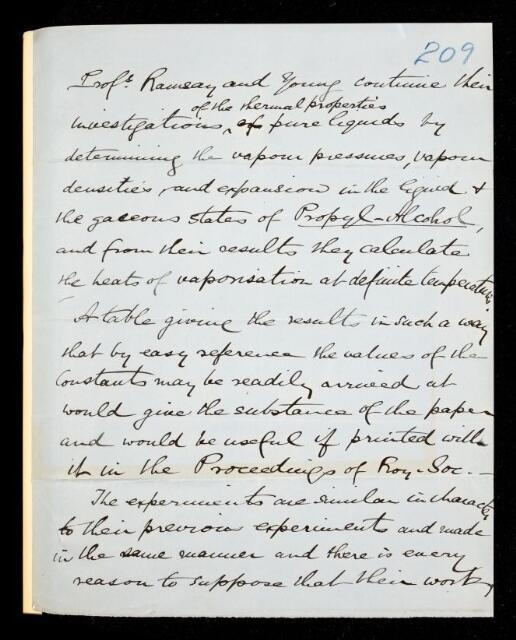 209
Profs. Ramsay and Young continue their
of the thermal properties
investigations, of pure liquids by
determining the vapour pressures, vapour
densities, and expansion in the liquid &
the gaseous states of Propyl-Alcohol,
and from their results they calculate
the heats of vaporisation at definite temperatures.
A table giving the results in such a way
that by easy reference the values of the
Constants may be readily arrived at
would give the substance of the paper
and would be useful if printed with
it in the Proceedings of Roy. Soc. —
The experiments are similar in character
to their previous experiments and made
in the same manner and there is every
reason to suppose that their work,